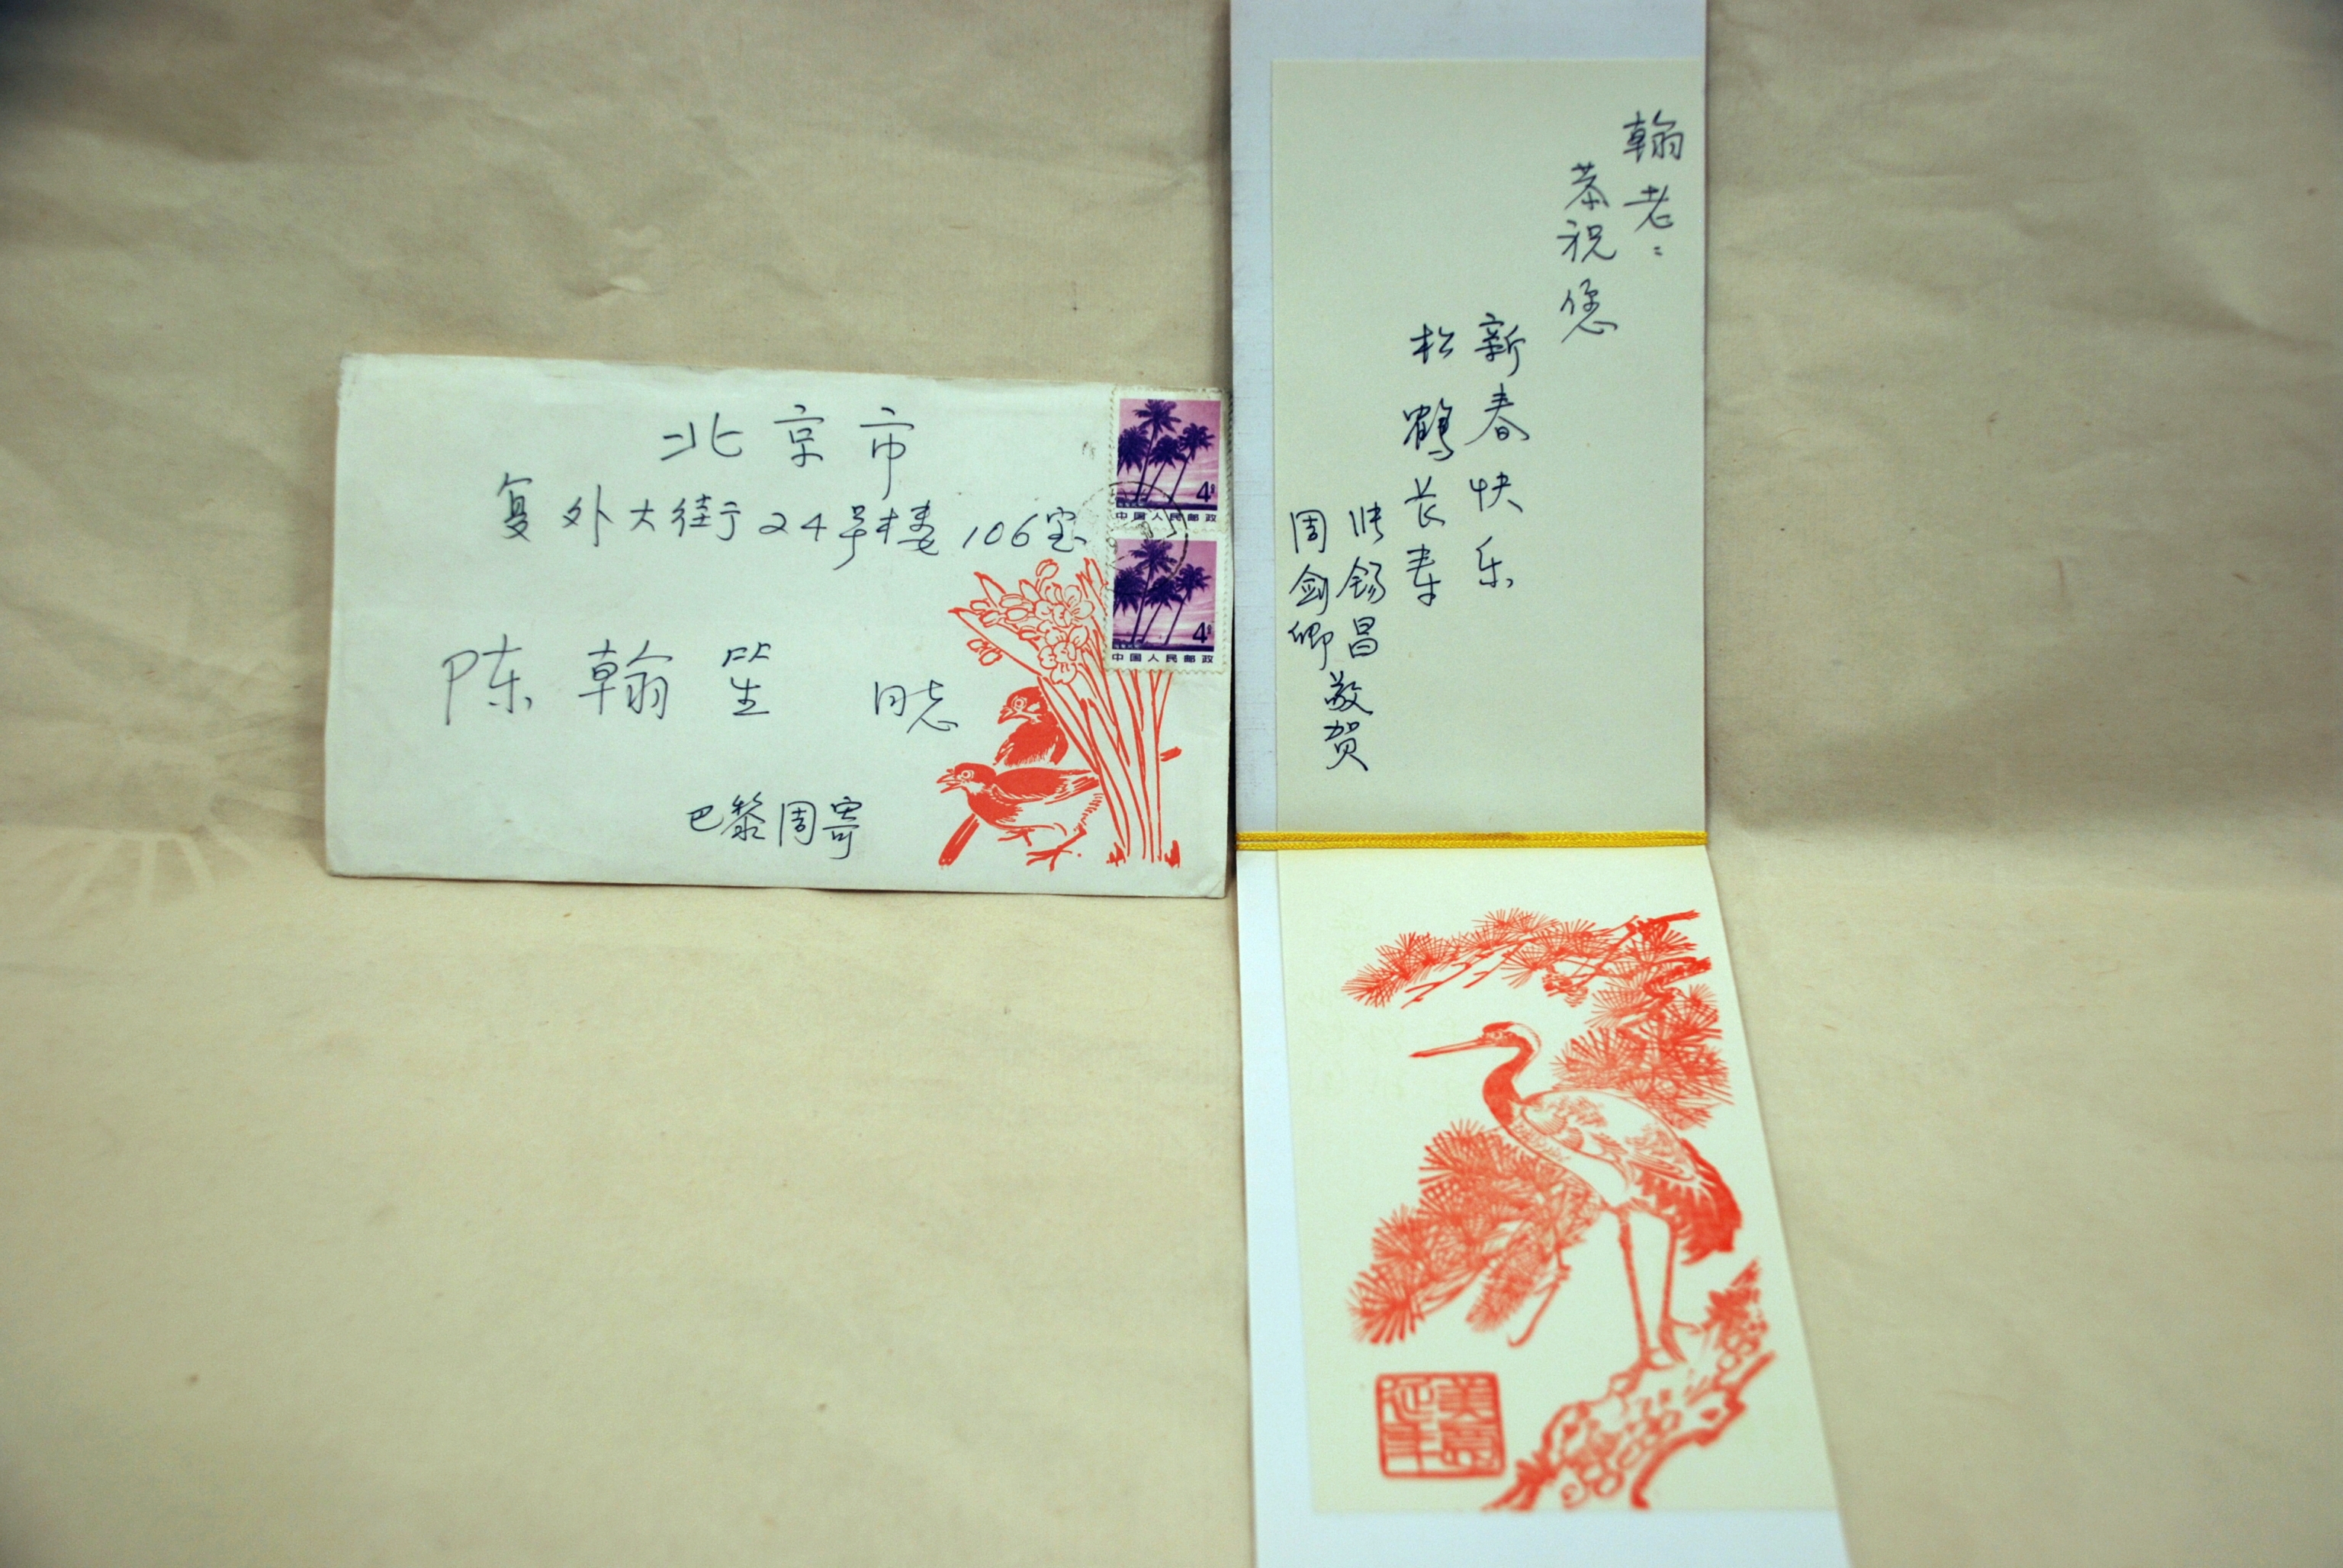 北京市
复外大街24号楼106室
陈翰笙 同志
巴黎周寄
4分
中国人民邮政
4分
中国人民邮政
翰老：
恭祝您
新春快乐
松鹤长寿
张锡昌
周剑卿
敬贺
美意
延年